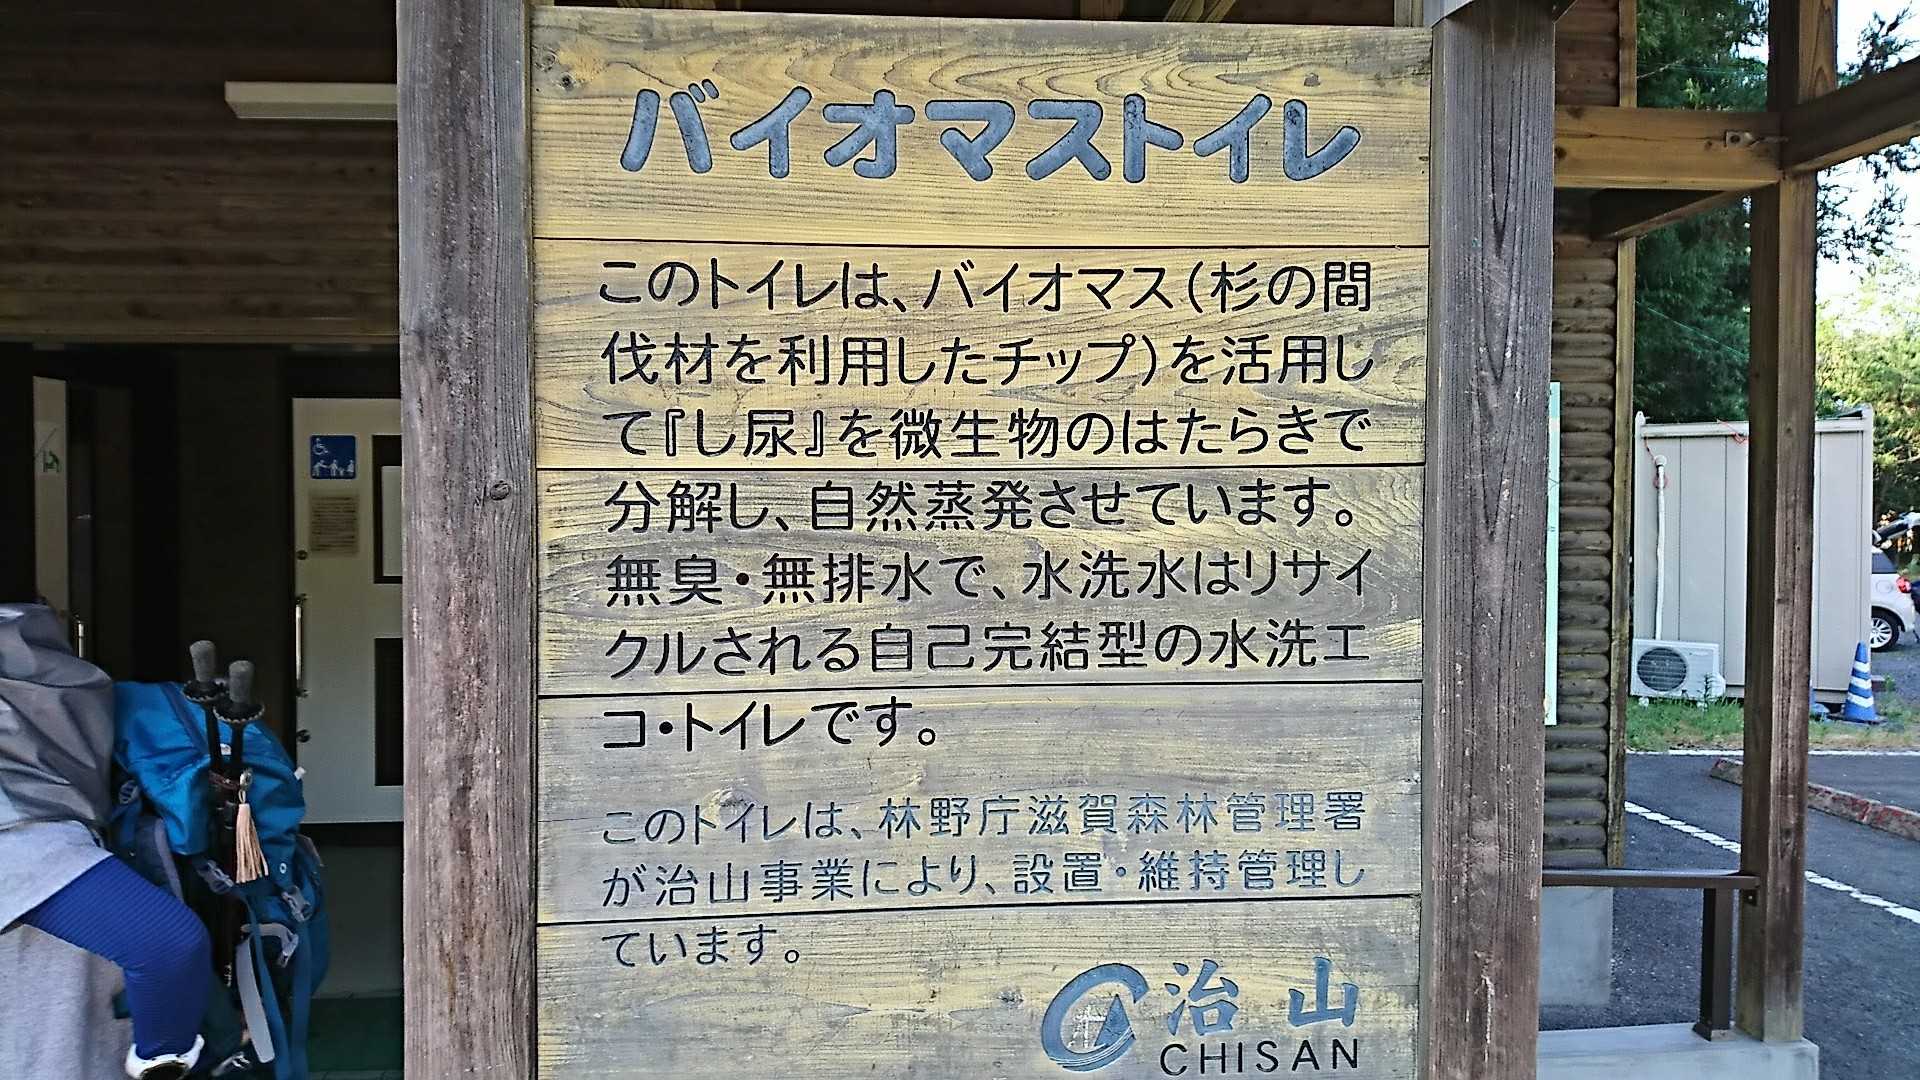 バイオマストイレ
このトイレは、バイオマス(杉の間
伐材を利用したチップ)を活用し
て『し尿』を微生物のはたらきで
分解し、自然蒸発させています。
無臭・無排水で、水洗水はリサイ
クルされる自己完結型の水洗エ
コ・トイレです。
このトイレは、林野庁滋賀森林管理署
が治山事業により、設置・維持管理し
ています。
治山
CHISAN